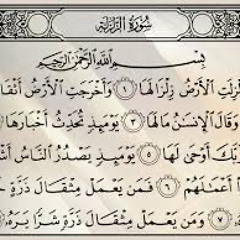 سُورَةُ الزَّلْزَلَةِ
بِسْمِ ٱللَّهِ ٱلرَّحْمَٰنِ ٱلرَّحِيمِ
زِلَتِ ٱلْأَرْضُ زِلْزَالَهَا ١ وَأَخْرَجَتِ ٱلْأَرْضُ أَثْقَا
وَقَالَ ٱلْإِنسَٰنُ مَا لَهَا ٣ يَوْمَئِذٍ تُحَدِّثُ أَخْبَارَهَا
بَّكَ أَوْحَىٰ لَهَا ٥ يَوْمَئِذٍ يَصْدُرُ ٱلنَّاسُ أَشْ
ا۟ أَعْمَٰلَهُمْ ٦ فَمَن يَعْمَلْ مِثْقَالَ ذَرَّةٍ خَ
٧ وَمَن يَعْمَلْ مِثْقَالَ ذَرَّةٍ شَرًّا يَرَهُۥ